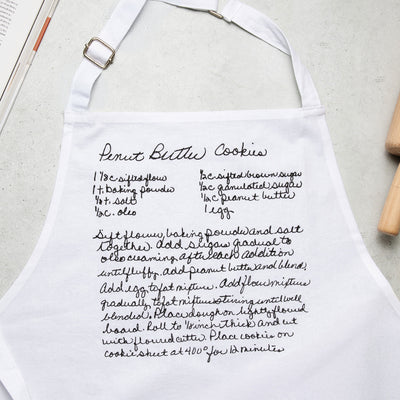 Penut Butter Cookies
1 1/8 c sifted flour
1 t. baking powder
1/8 t. salt
1/2 c. oleo
1/2 c sifted brown sugar
1/2 c granulated sugar
1/2 c peanut butter
1 egg
Sift flower, baking powder and salt
together. Add sugar gradual to
oleo creaming after each addition
until fluffy. add peanut butter and blend.
Add egg to fat mixture. Add flour mixture
gradually to fat mixture stirring until well
blended. Place dough on lightly floured
board. Roll to 1/8 inch thick and cut
with floured cutter. Place cookies on
cookie sheet at 400° for 12 minutes